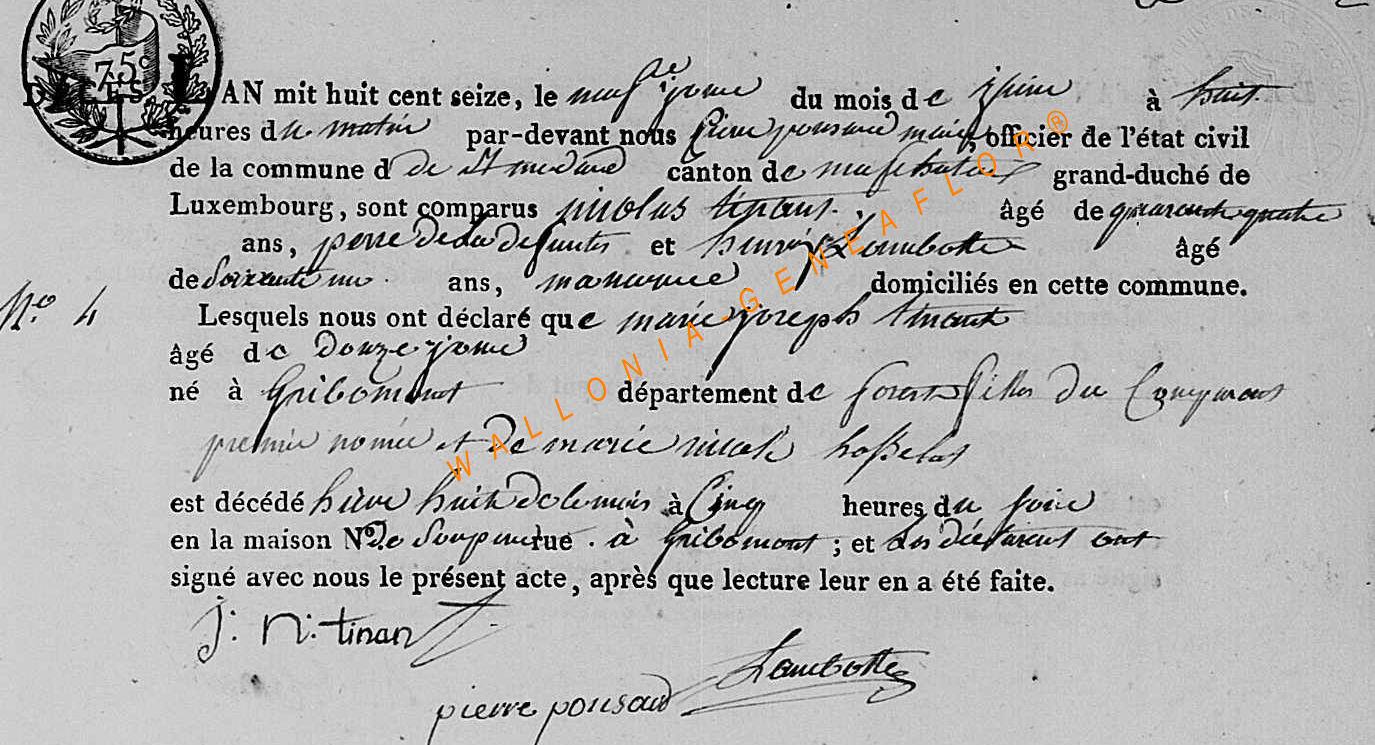 75c
L'AN mil huit cent seize, le neufe jour du mois de à huit
heures du matin par-devant nous pierre ponsard maire, officier de l'état civil
de la commune d de St medard canton de neufchateau grand-duché de
Luxembourg, sont comparus nicolas tinant. âgé de quarante quatre
ans, perre de la defunte et henry Lambotte âgé
de Soixante un ans, manouvre domiciliés en cette commune.
No. 4
Lesquels nous ont déclaré que marie joseph tinant
âgé de Douze jour
né à Gribomont département de forest fille du Comparant
premie nomée et De marie nicole
est décédé hière huit de le mois à Cinq heures du soire
en la maison No De Son pere rue. à Gribomont ; et Les déclarent ont
signé avec nous le présent acte, après que lecture leur en a été faite.
j: n: tinant
Lambotte
pierre ponsard
WALLONIA-GENEAFLOR®